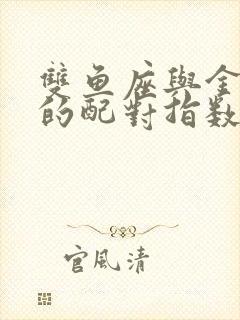 雙魚座與金
的配對指數
官風清